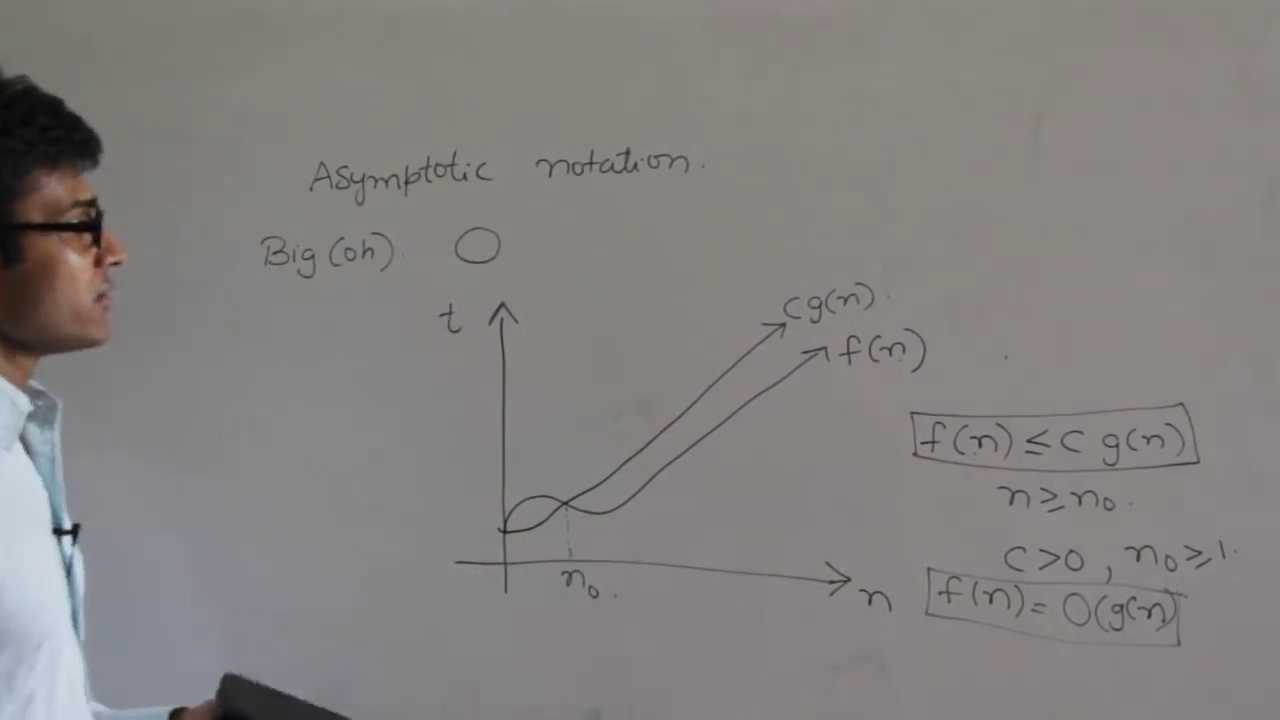 Asymptotic notation.
Big (oh). O
t
cg(n).
f(n)
f(n) ≤ c g(n)
n ≥ n₀.
c > 0, n₀ ≥ 1.
n₀.
n
f(n) = O(g(n)